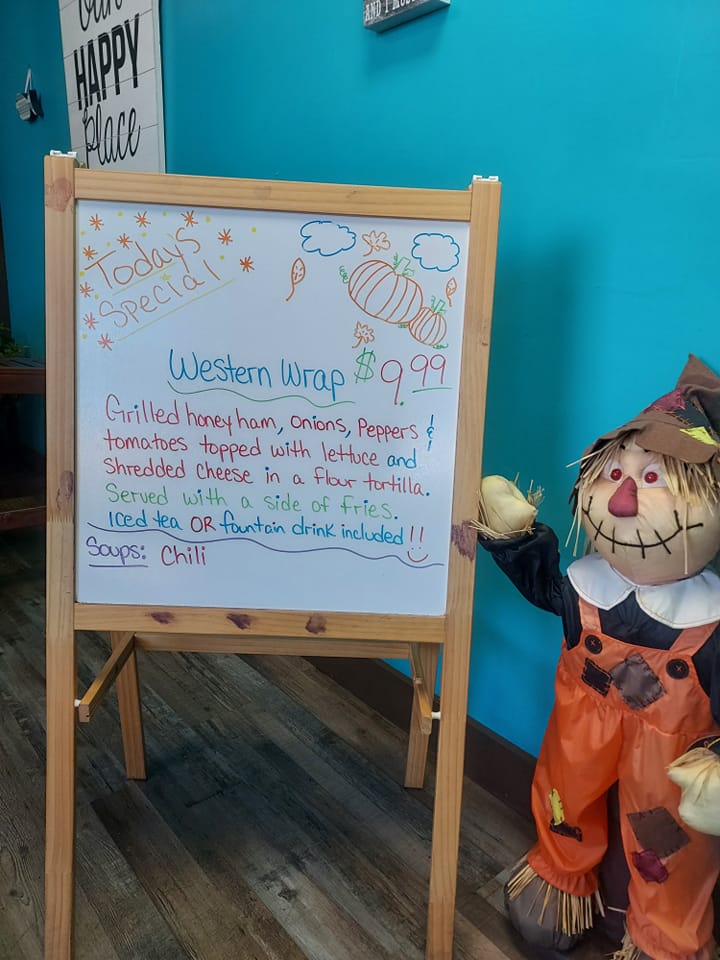 our
HAPPY
place
AND I MUST
Today's
Special
Western Wrap $9.99
Grilled honey ham, onions, Peppers &
tomatoes topped with lettuce and
shredded cheese in a flour tortilla.
Served with a side of fries.
Iced tea OR fountain drink included!!
Soups: Chili